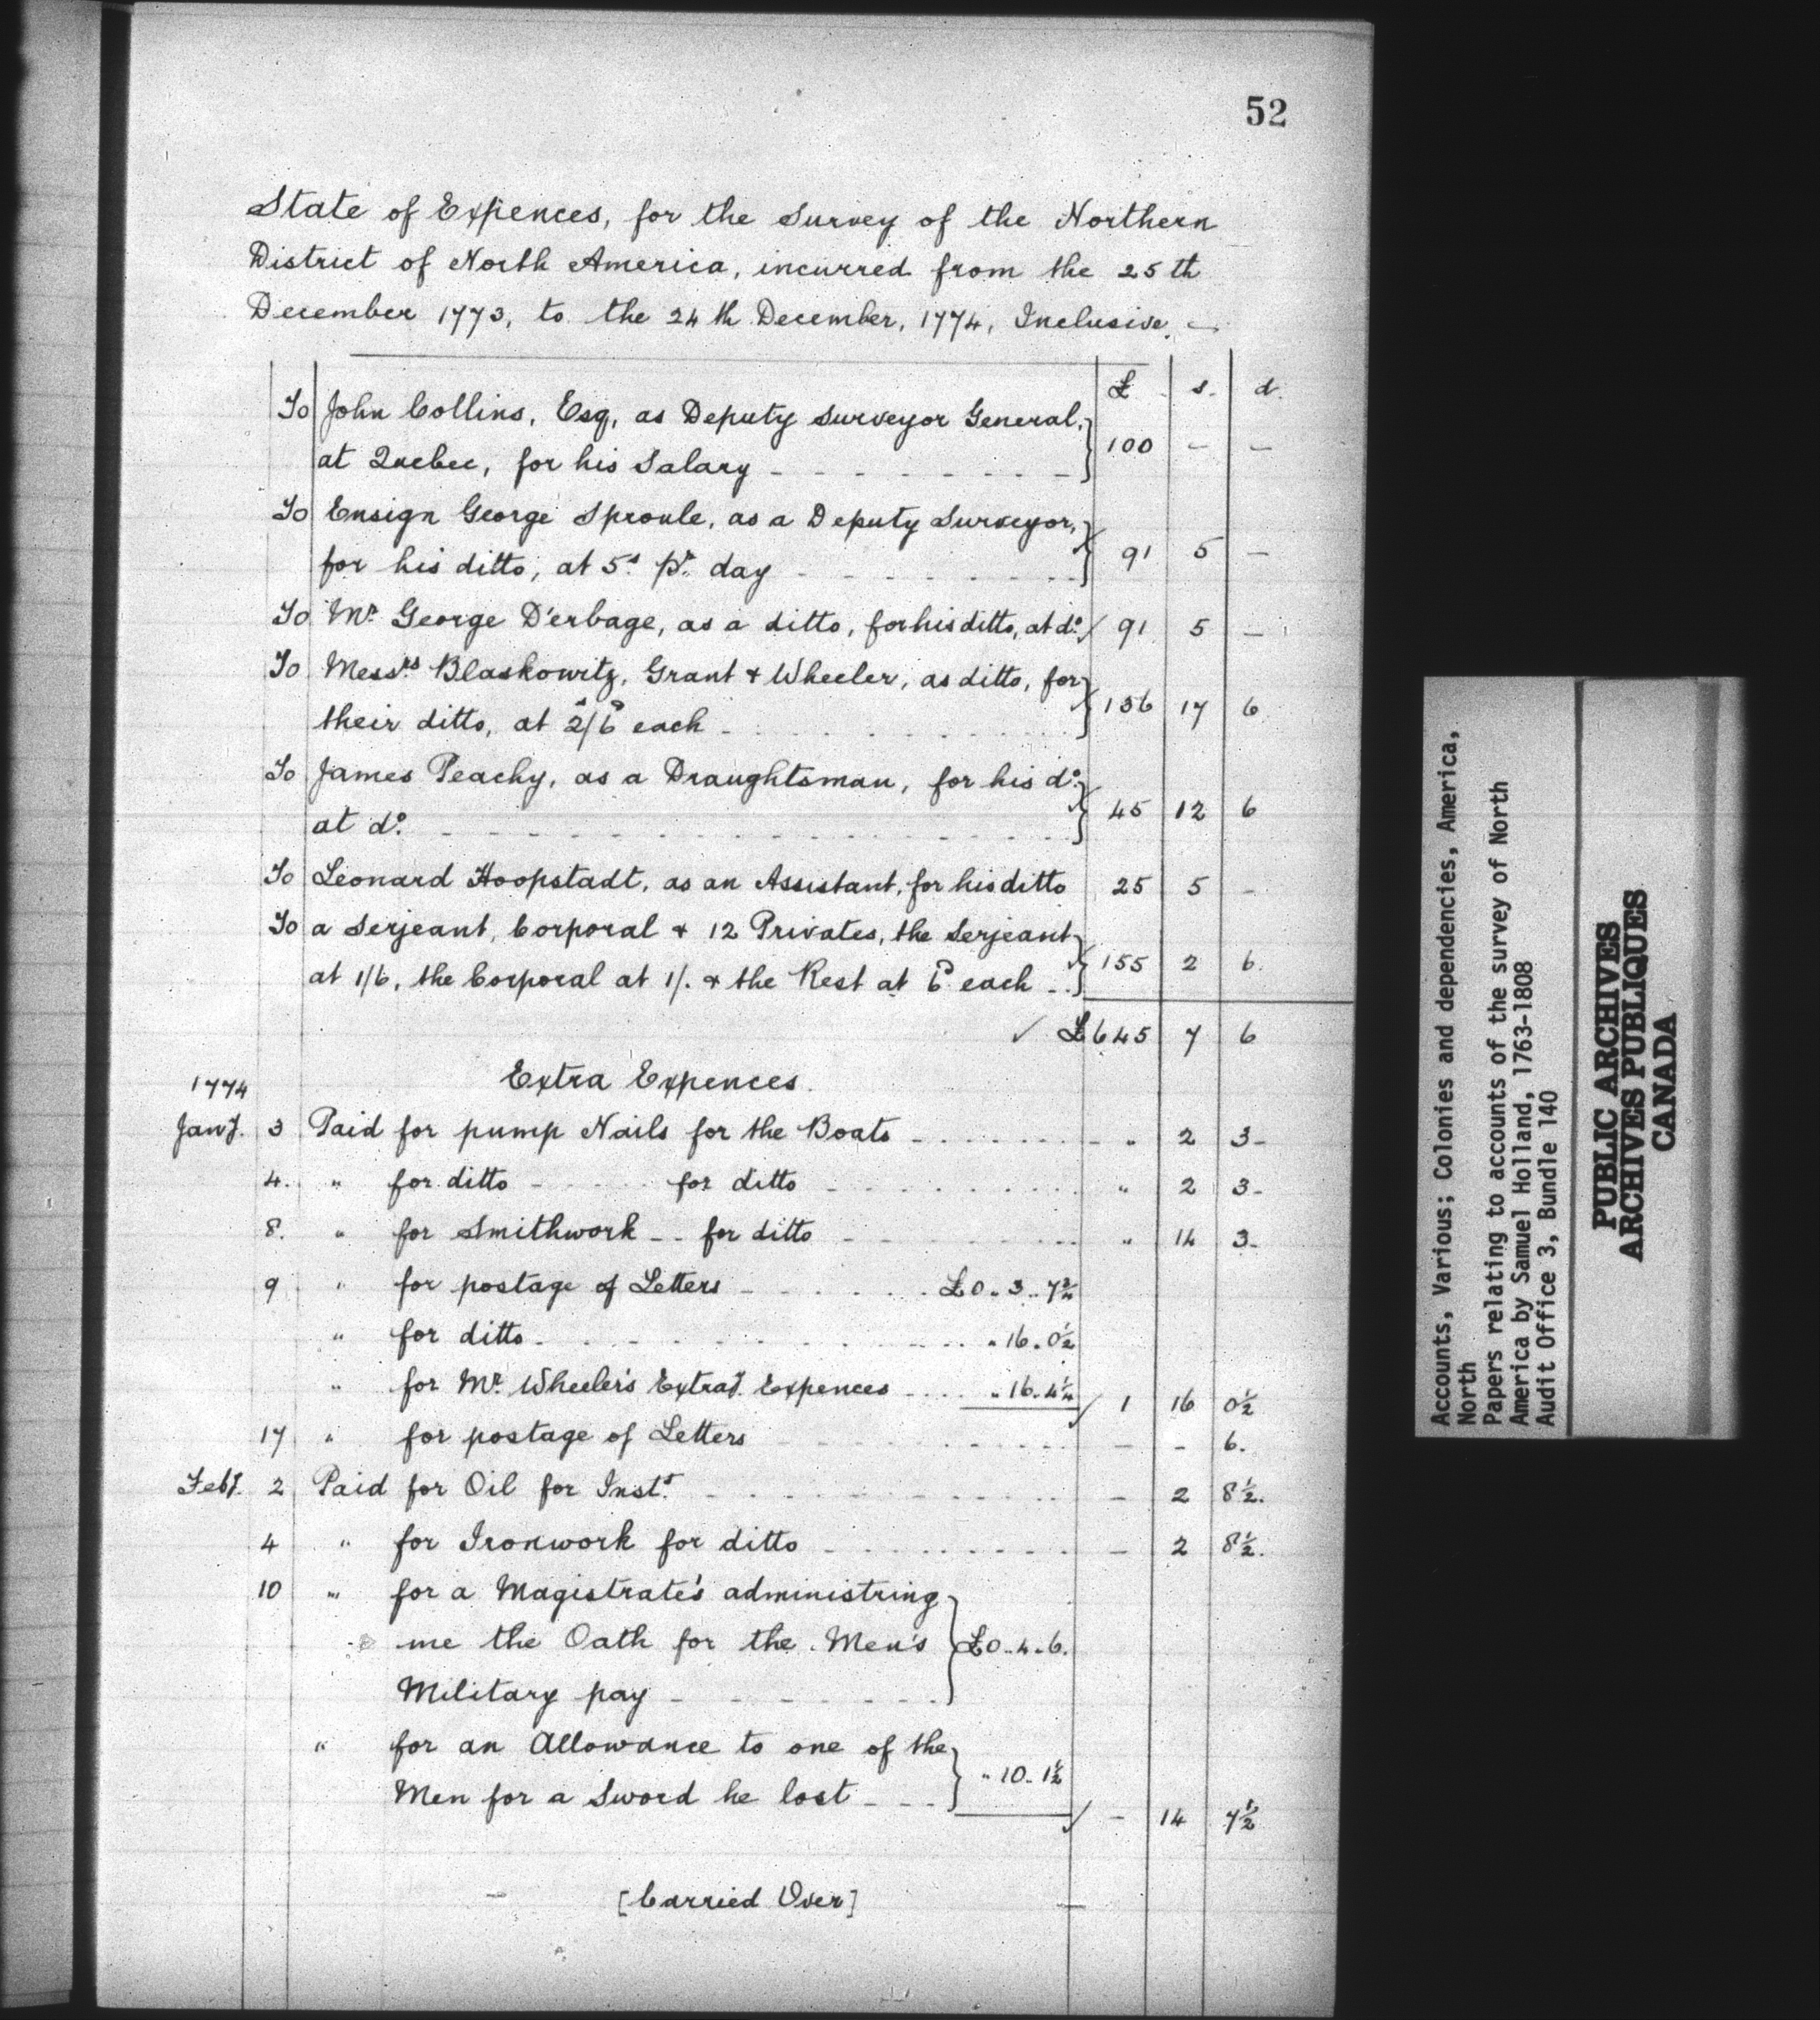 52
State of Expences, for the Survey of the Northern
District of North America, incurred from the 25th
December 1773, to the 24th December, 1774, Inclusive.
£ s. d.
To John Collins, Esq, as Deputy Surveyor General,
at Quebec, for his Salary 100 - -
To Ensign George Sproule, as a Deputy Surveyor,
for his ditto, at 5s pr. day 91 5 -
To Mr. George D'erbage, as a ditto, for his ditto, at do. 91 5 -
To Messrs Blaskowitz, Grant & Wheeler, as ditto, for
their ditto, at 2s/6d each 136 17 6
To James Peachy, as a Draughtsman, for his do.
at do. 45 12 6
To Leonard Hoopstadt, as an Assistant, for his ditto 25 5 -
To a Serjeant, Corporal & 12 Privates, the Serjeant
at 1/6, the Corporal at 1/. & the Rest at 6d each 155 2 6.
✓ £645 7 6
Extra Expences.
1774
Jany. 3 Paid for pump Nails for the Boats " 2 3-
4. " for ditto for ditto " 2 3-
8. " for Smithwork -- for ditto " 14 3-
9 " for postage of Letters £0..3..7¾
" for ditto " 16.0½
" for Mr. Wheeler's Extray. Expences " 16.4¼ 1 16 0½
17 " for postage of Letters - - 6.
Feby. 2 Paid for Oil for Instt. - 2 8½.
4 " for Ironwork for ditto - 2 8½.
10 " for a Magistrate's administring
me the Oath for the Men's £0..4..6.
Military pay
" for an Allowance to one of the
Men for a Sword he lost " 10.. 1½ - 14 7½
[Carried Over]
Accounts, Various; Colonies and dependencies, America,
North
Papers relating to accounts of the survey of North
America by Samuel Holland, 1763-1808
Audit Office 3, Bundle 140
PUBLIC ARCHIVES
ARCHIVES PUBLIQUES
CANADA